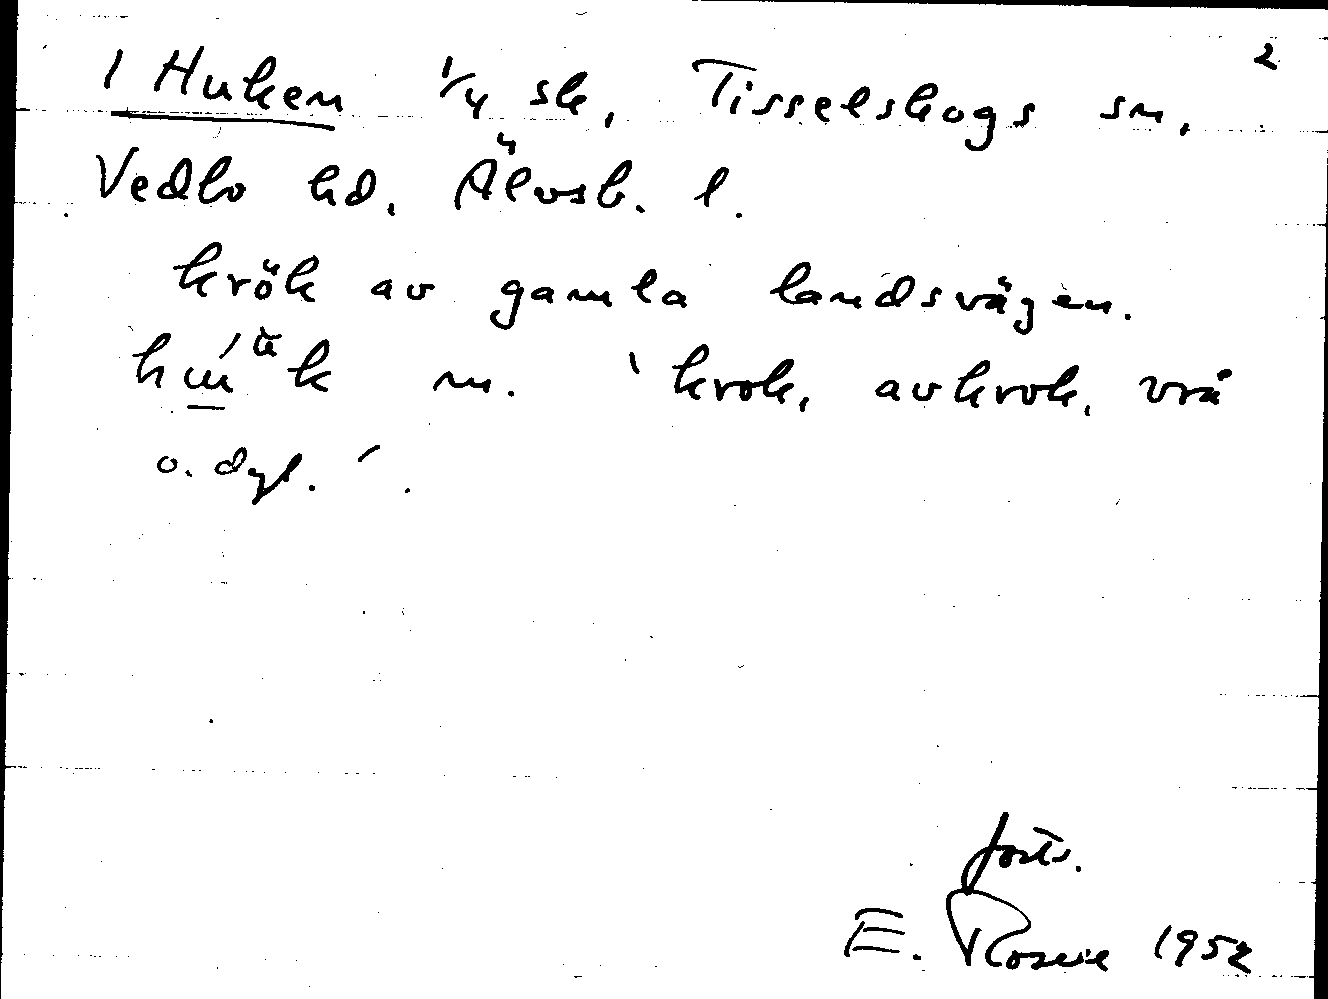 2
1 Huken 1/4 sk, Tisselskogs sn,
Vedbo hd, Älvsb. l.
krök av gamla landsvägen.
m. ' krok, avkrok, vrå
o. dyl. ' .
forts.
E. 1952